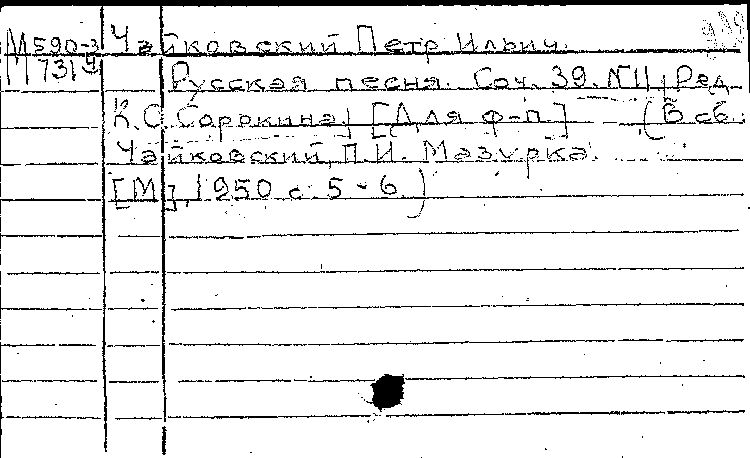 М 590-3 Чайковский Петр Ильич.
731 Русская песня. Соч. 39. N11, Ред.
К.С. Сорокина, [Для ф-п.] (В сб.:
Чайковский, П.И. Мазурка.
[М], 1950 с. 5-6.)